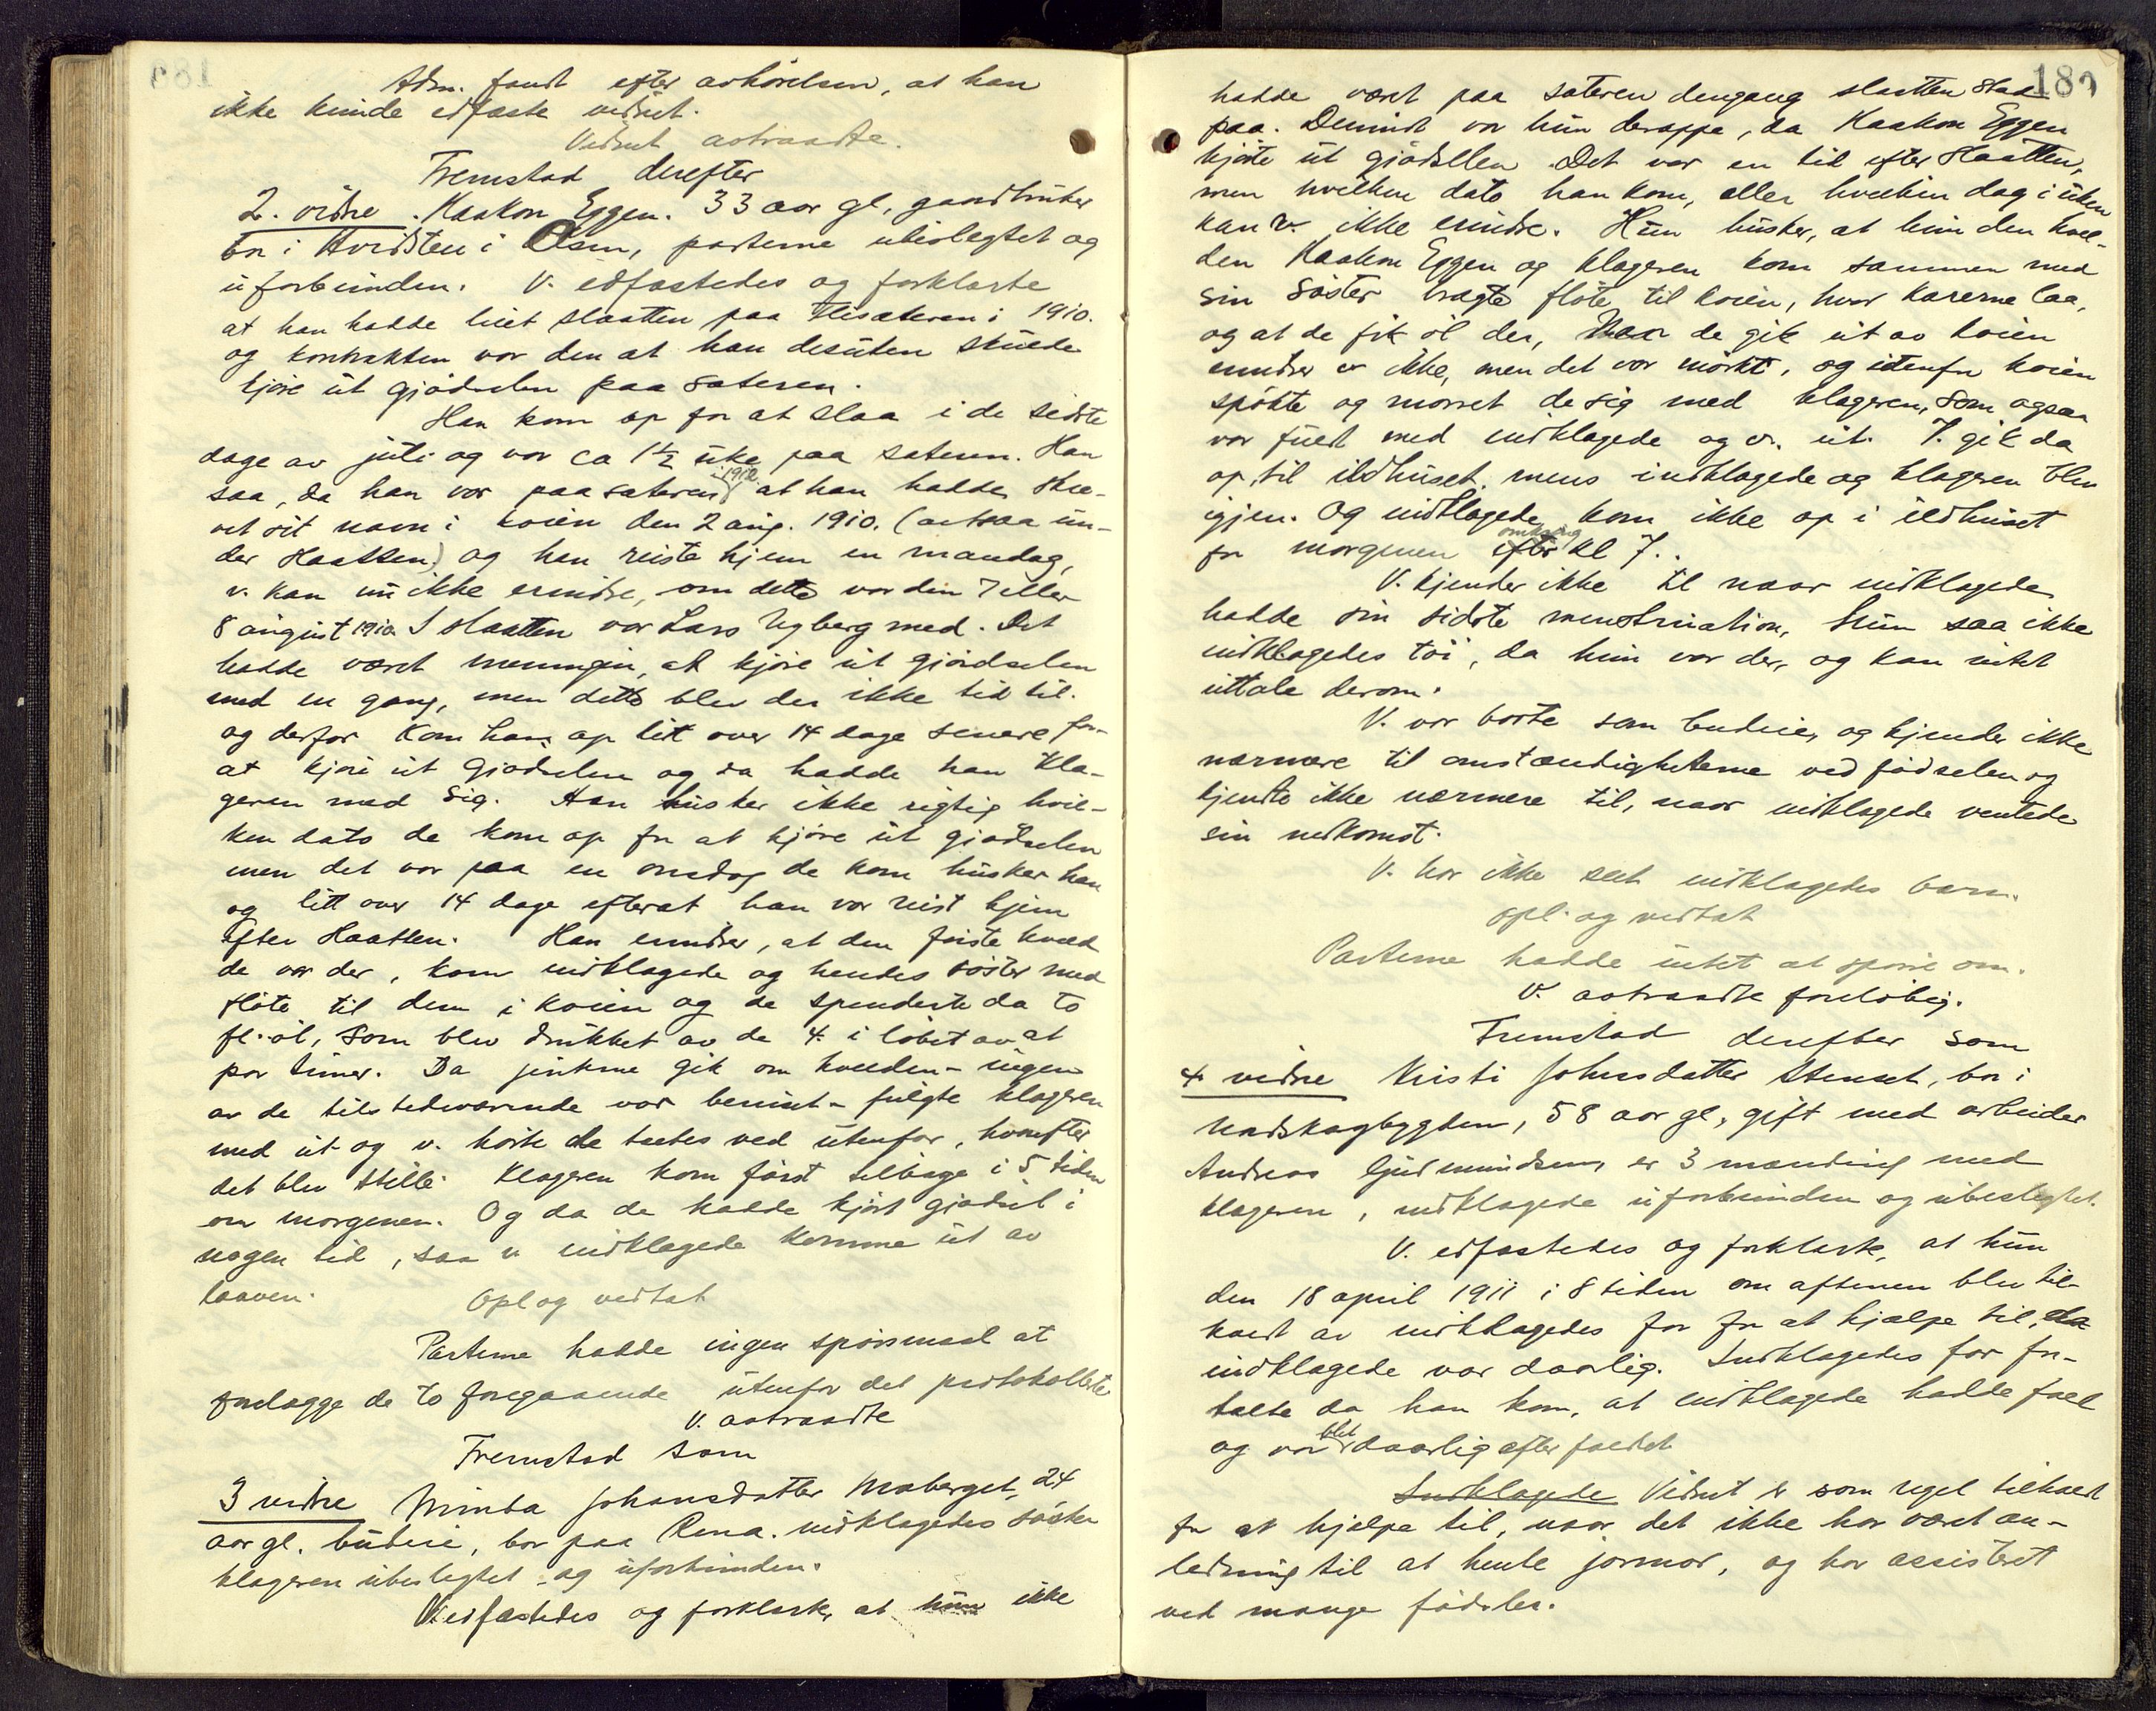 Adm. fandt efter avhörelsen, at han
ikke kunde edfæste vidnet.
Vidnet avtraadte.
Fremstod derefter
2. vidne. Haakon Eggen. 33 aar gl, gaardbruker
bor i Hvidsten i Elverum, parterne ubeslegtet og
uforbunden. V. edfæstedes og forklarte
at han hadde leiet slaatten paa sæteren i 1910.
og kontrakten var den at han desuten skulde
kjöre ut gjödselen paa sæteren.
Han kom op for at slaa i de sidste
dage av juli og var ca 1½ uke paa sæteren. Han
saa, da han var paa sæteren i 1912 at han hadde skre-
vet sit navn i koien den 2 aug. 1910. (altsaa un-
der slaatten) og han reiste hjem en mandag,
v. kan nu ikke erindre, om dette var den 7 eller
8 august 1910. I slaatten var Lars Ugberg med. Det
hadde været meningen, at kjöre ut gjödselen
med en gang, men dette blev der ikke tid til.
og derfor kom han op litt over 14 dage senere for
at kjöre ut gjödselen og da hadde han kla-
geren med sig. Han husker ikke rigtig hvil-
ken dato de kom op for at kjöre ut gjödselen
men det var paa en onsdag de kom husker han
og litt over 14 dage efterat han var reist hjem
efter slaatten. Han erindrer, at den förste kveld
de var der, kom indklagede og hendes söster med
flöte til dem i koien og de spenderte da to
fl. öl, som blev drukket av de 4 i löbet av et
par timer. Da jenterne gik om kvelden - ingen
av de tilstedeværende var beruset - fulgte klageren
med ut og v. hörte de teetes ved utenfor, hvorefter
det blev stille. Klageren kom först tilbage i 5 tiden
om morgenen. Og da de hadde kjört gjödsel i
nogen tid, saa v. indklagede komme ut av
laaven.
Opl og vedtat
Parterne hadde ingen spörsmaal at
forelægge de to foregaaende utenfor det protokollerte
V. avtraadte
Fremstod som
3 vidne Minda Johansdatter Moberget, 24
aar gl. budeie, bor paa Rena. indklagedes söster
klageren ubeslegtet og uforbunden.
V. edfæstedes og forklarte, at hun ikke
189
hadde været paa sæteren dengang slaatten stod
paa. Derimot var hun deroppe, da Haakon Eggen
kjörte ut gjödselen. Det var en tid efter slaatten,
men hvilken dato han kom, eller hvilken dag i uken
kan v. ikke erindre. Hun husker, at hun den kvel-
den Haakon Eggen og klageren kom sammen med
sin söster bragte flöte til koien, hvor karerne laa,
og at de fik öl der, Naar de gik ut av koien
erindrer v. ikke, men det var mörkt, og utenfor koien
spökte og morret de sig med klageren, som ogsaa
var fuldt med indklagede og v. ut. V. gik da
op til ildhuset, mens indklagede og klageren blev
igjen. Og indklagede kom ikke op i ildhuset
för morgenen efter omkring kl 7..
V. kjender ikke til naar indklagede
hadde sin sidste menstruation, hun saa ikke
indklagedes töi, da hun var der, og kan intet
uttale derom.
V. var borte som budeie, og kjender ikke
nærmere til omstændigheterne ved födselen og
kjendte ikke nærmere til, naar indklagede ventede
sin nedkomst.
V. har ikke seet indklagedes barn.
Opl. og vedtat
Parterne hadde intet at spörre om.
V. avtraadte forelöbig.
Fremstod derefter som
4 vidne Kristi Johnsdatter Stenset, bor i
Nordskogbygden, 58 aar gl, gift med arbeider
Andreas Gudmundsen, er 3 mending med
klageren, indklagede uforbunden og ubeslegtet.
V. edfæstedes og forklarte, at hun
den 18 april 1911 i 8 tiden om aftenen blev til-
kaldt av indklagedes far for at hjælpe til, da
indklagede var daarlig. Indklagedes far for-
talte da han kom, at indklagede hadde faldt
og var blit daarlig efter faldet
Indklagede Vidnet er som regel tilkaldt
for at hjelpe til, naar det ikke har været an-
ledning til at hente jormor, og har assisteret
ved mange födsler.